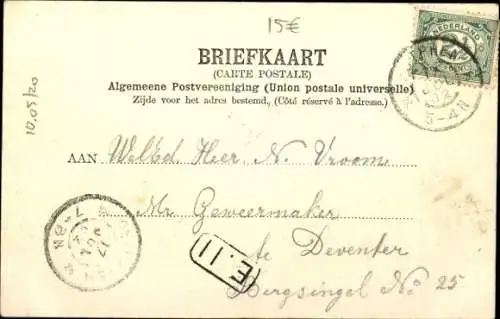 15€
10.05/20
NEDERLAND
BRIEFKAART
(CARTE POSTALE)
Algemeene Postvereeniging (Union postale universelle)
Zijde voor het adres bestemd. (Côté réservé à l'adresse.)
5-4N
AAN WelEd. Heer N. Vroom
Mr Geweermaker
te Deventer
Bergsingel No 25
E.11